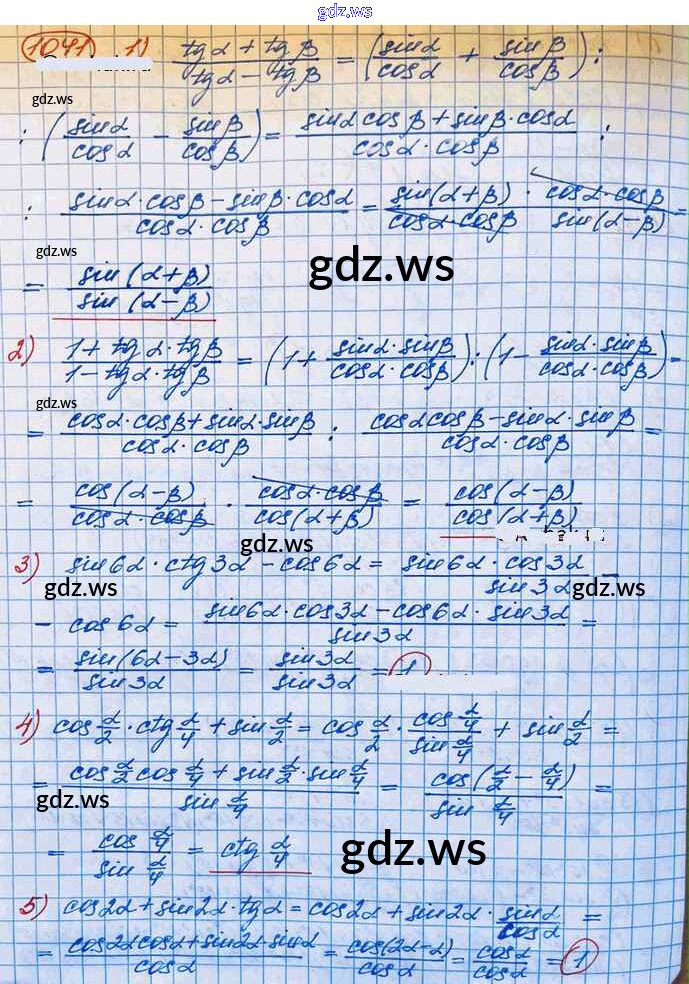 gdz.ws
1041 1) (tgα + tgβ)/(tgα − tgβ) = (sinα/cosα + sinβ/cosβ) :
gdz.ws
: (sinα/cosα − sinβ/cosβ) = (sinα cosβ + sinβ·cosα)/(cosα·cosβ) :
: (sinα·cosβ − sinβ·cosα)/(cosα·cosβ) = sin(α+β)/(cosα·cosβ) · (cosα·cosβ)/sin(α−β) =
gdz.ws
gdz.ws
= sin(α+β)/sin(α−β)
2) (1 + tgα·tgβ)/(1 − tgα·tgβ) = (1 + (sinα·sinβ)/(cosα·cosβ)) : (1 − (sinα·sinβ)/(cosα·cosβ)) =
gdz.ws
= (cosα·cosβ + sinα·sinβ)/(cosα·cosβ) : (cosα cosβ − sinα·sinβ)/(cosα·cosβ) =
= cos(α−β)/(cosα·cosβ) · (cosα·cosβ)/cos(α+β) = cos(α−β)/cos(α+β)
gdz.ws
3) sin6α·ctg3α − cos6α = (sin6α·cos3α)/sin3α −
gdz.ws
− cos6α = (sin6α·cos3α − cos6α·sin3α)/sin3α =
= sin(6α−3α)/sin3α = sin3α/sin3α = 1
gdz.ws
4) cos α/2 · ctg α/4 + sin α/2 = cos α/2 · (cos α/4)/(sin α/4) + sin α/2 =
= (cos α/2 cos α/4 + sin α/2 · sin α/4)/(sin α/4) = cos(α/2 − α/4)/(sin α/4) =
gdz.ws
= (cos α/4)/(sin α/4) = ctg α/4
gdz.ws
5) cos2α + sin2α·tgα = cos2α + sin2α · sinα/cosα =
= (cos2α cosα + sin2α·sinα)/cosα = cos(2α−α)/cosα = cosα/cosα = 1
gdz.ws